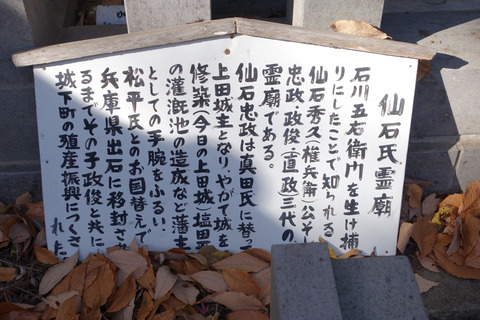 仙石氏霊廟
石川五右衛門を生け捕
りにしたことで知られる
仙石秀久(権兵衛)公そし
忠政 政俊 直政三代の
霊廟である。
仙石忠政は真田氏に替っ
上田城主となり、やがて城を
修築(今日の上田城)塩田
の灌漑池の造成など藩主
としての手腕をふるい、
松平氏とのお国替えで
兵庫県出石に移封さ
るまでその子政俊と共に
城下町の殖産振興につくさ
れ